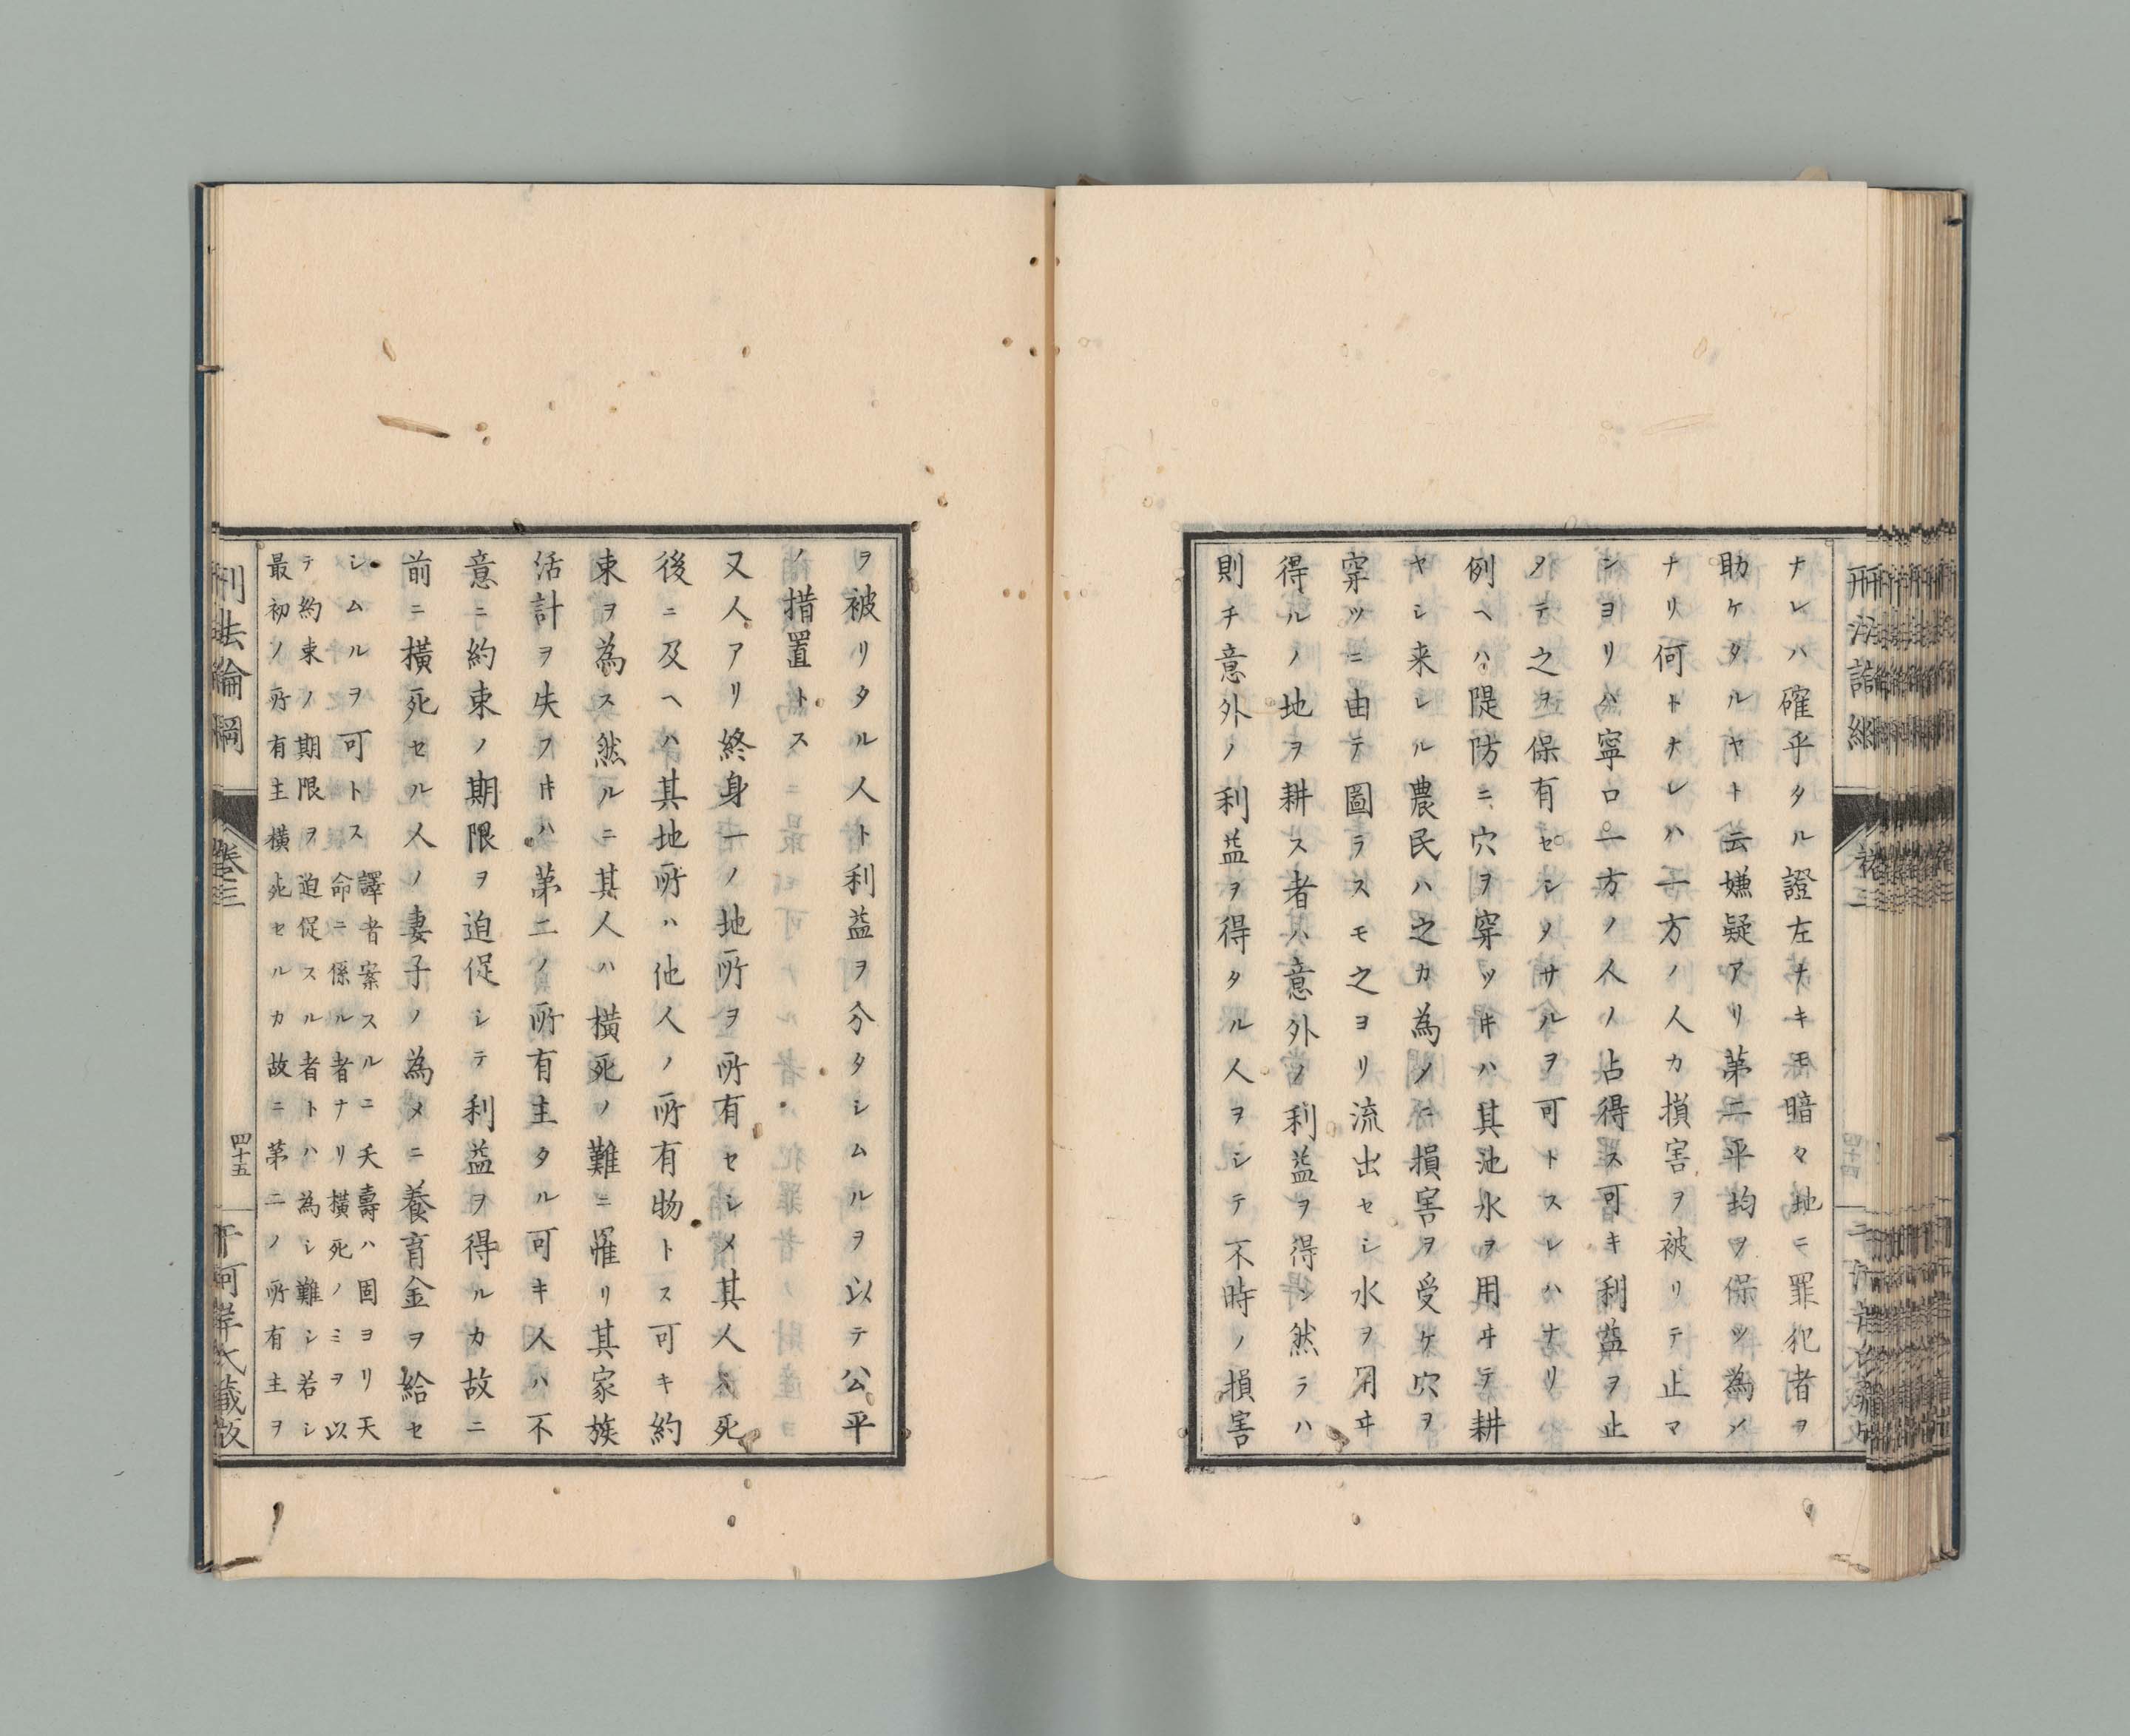 ナレハ確乎タル證左ナキモ暗々地ニ罪犯者ヲ
助ケタルヤト云嫌疑アリ第二平均ヲ保ツ為メ
ナリ何トナレハ一方ノ人カ損害ヲ被リテ止マ
ンヨリハ寧ロ一方ノ人ノ占得ス可キ利益ヲ止
メテ之ヲ保有セシメサルヲ可トスレハナリ
例ヘハ隄防ニ穴ヲ穿ツ𪜈ハ其池水ヲ用ヰテ耕
ヤシ来レル農民ハ之カ為メニ損害ヲ受ケ穴ヲ
穿ツニ由テ圖ラスモ之ヨリ流出セシ水ヲ用ヰ
得ルノ地ヲ耕ス者ハ意外ノ利益ヲ得ン然ラハ
則チ意外ノ利益ヲ得タル人ヲシテ不時ノ損害
ヲ被リタル人ト利益ヲ分タシムルヲ以テ公平
ノ措置トス
又人アリ終身一ノ地所ヲ所有セシメ其人ノ死
後ニ及ヘハ其地所ハ他人ノ所有物トス可キ約
束ヲ為ス然ルニ其人ハ橫死ノ難ニ罹リ其家族
活計ヲ失フ𪜈ハ第二ノ所有主タル可キ人ハ不
意ニ約束ノ期限ヲ迫促シテ利益ヲ得ルカ故ニ
前ニ橫死セル人ノ妻子ノ為メニ養育金ヲ給セ
シムルヲ可トス
譯者案スルニ夭壽ハ固ヨリ天
命ニ係ル者ナリ橫死ノミヲ以
テ約束ノ期限ヲ迫促スル者トハ為シ難シ若シ
最初ノ所有主橫死セルカ故ニ第二ノ所有主ヲ
刑法論綱
卷三
四十五
何禮之藏版